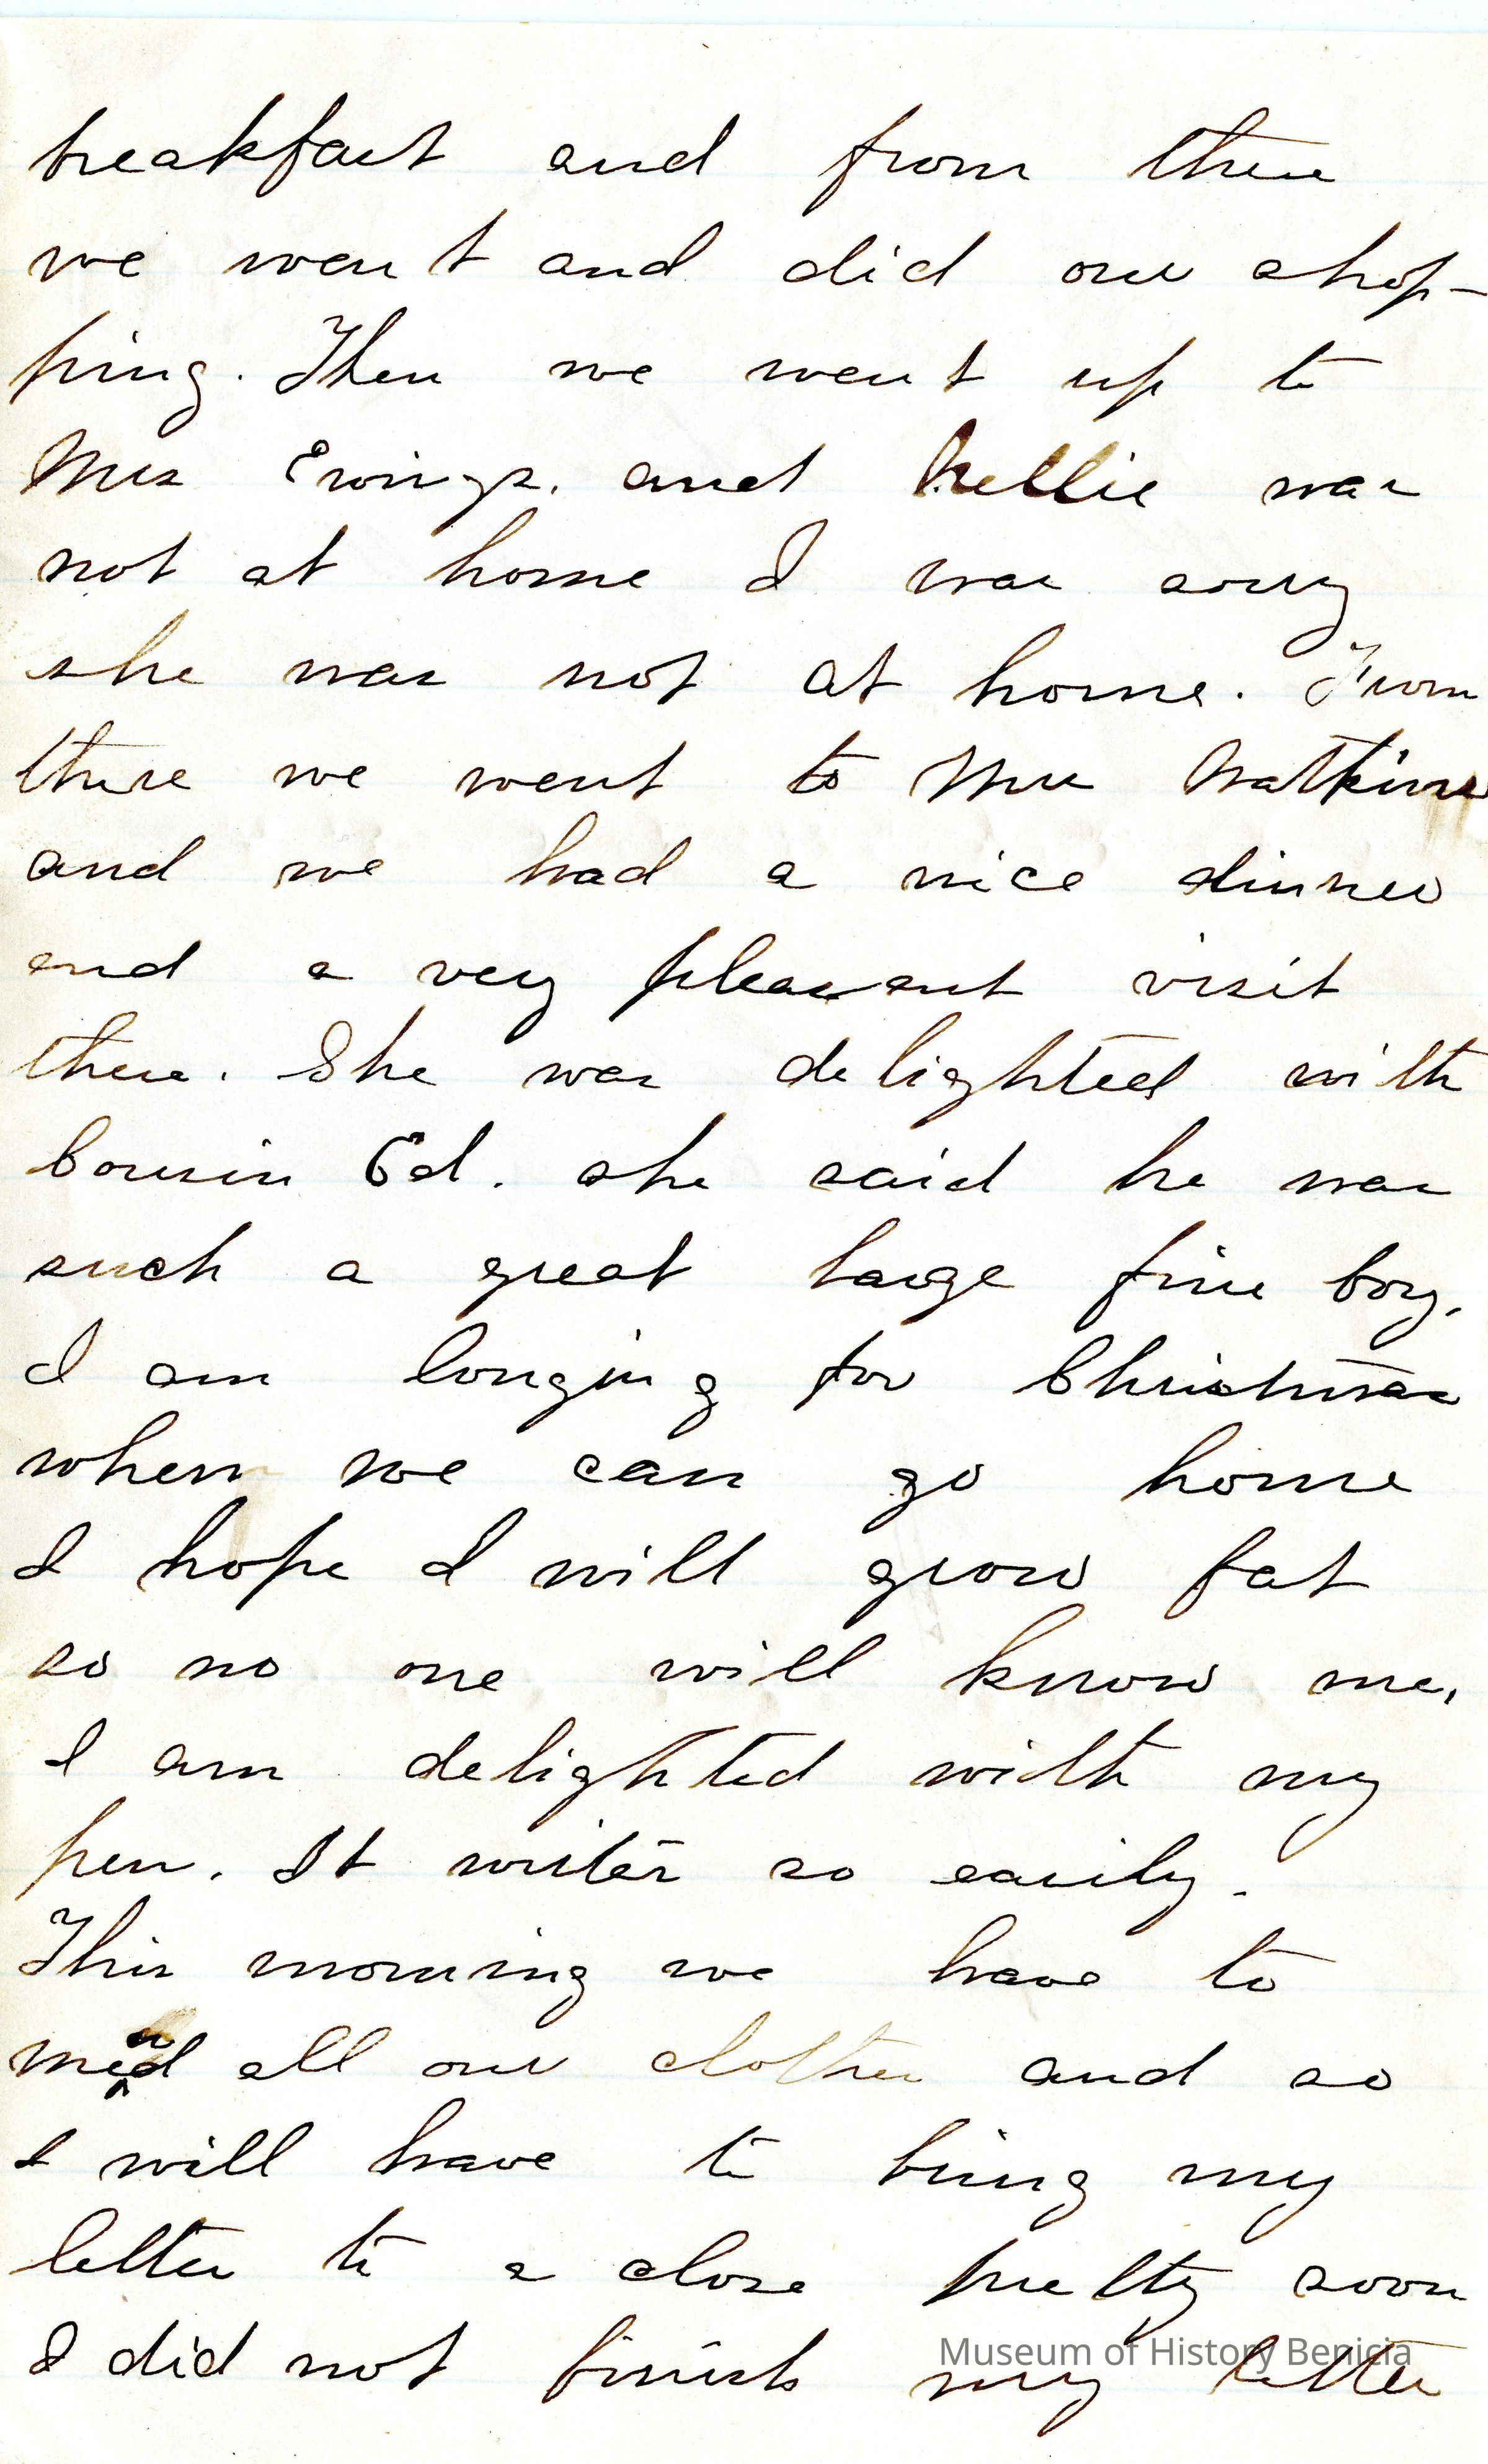 breakfast and from there
we went and did our shop-
ping. Then we went up to
Mrs Ewings. and Nellie was
not at home I was sorry
she was not at home. From
there we went to Mrs Watkins
and we had a nice dinner
and a very pleasant visit
there. She was delighted with
Cousin Ed. she said he was
such a great large fine boy.
I am longing for Christmas
when we can go home
I hope I will grow fat
so no one will know me.
I am delighted with my
pen. It writes so easily.
This morning we have to
mend all our clothes and so
I will have to bring my
letter to a close pretty soon
I did not finish my letter
Museum of History Benicia